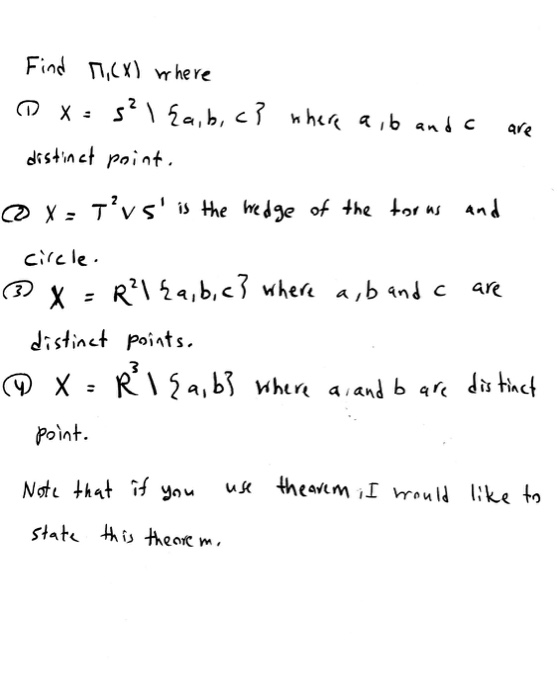 Find Π₁(X) where
① X = S² \ {a,b,c} where a,b and c are
distinct point.
② X = T² ∨ S¹ is the wedge of the torus and
circle.
③ X = R² \ {a,b,c} where a,b and c are
distinct points.
④ X = R³ \ {a,b} where a, and b are distinct
point.
Note that if you use thearem, I would like to
state this theorem.